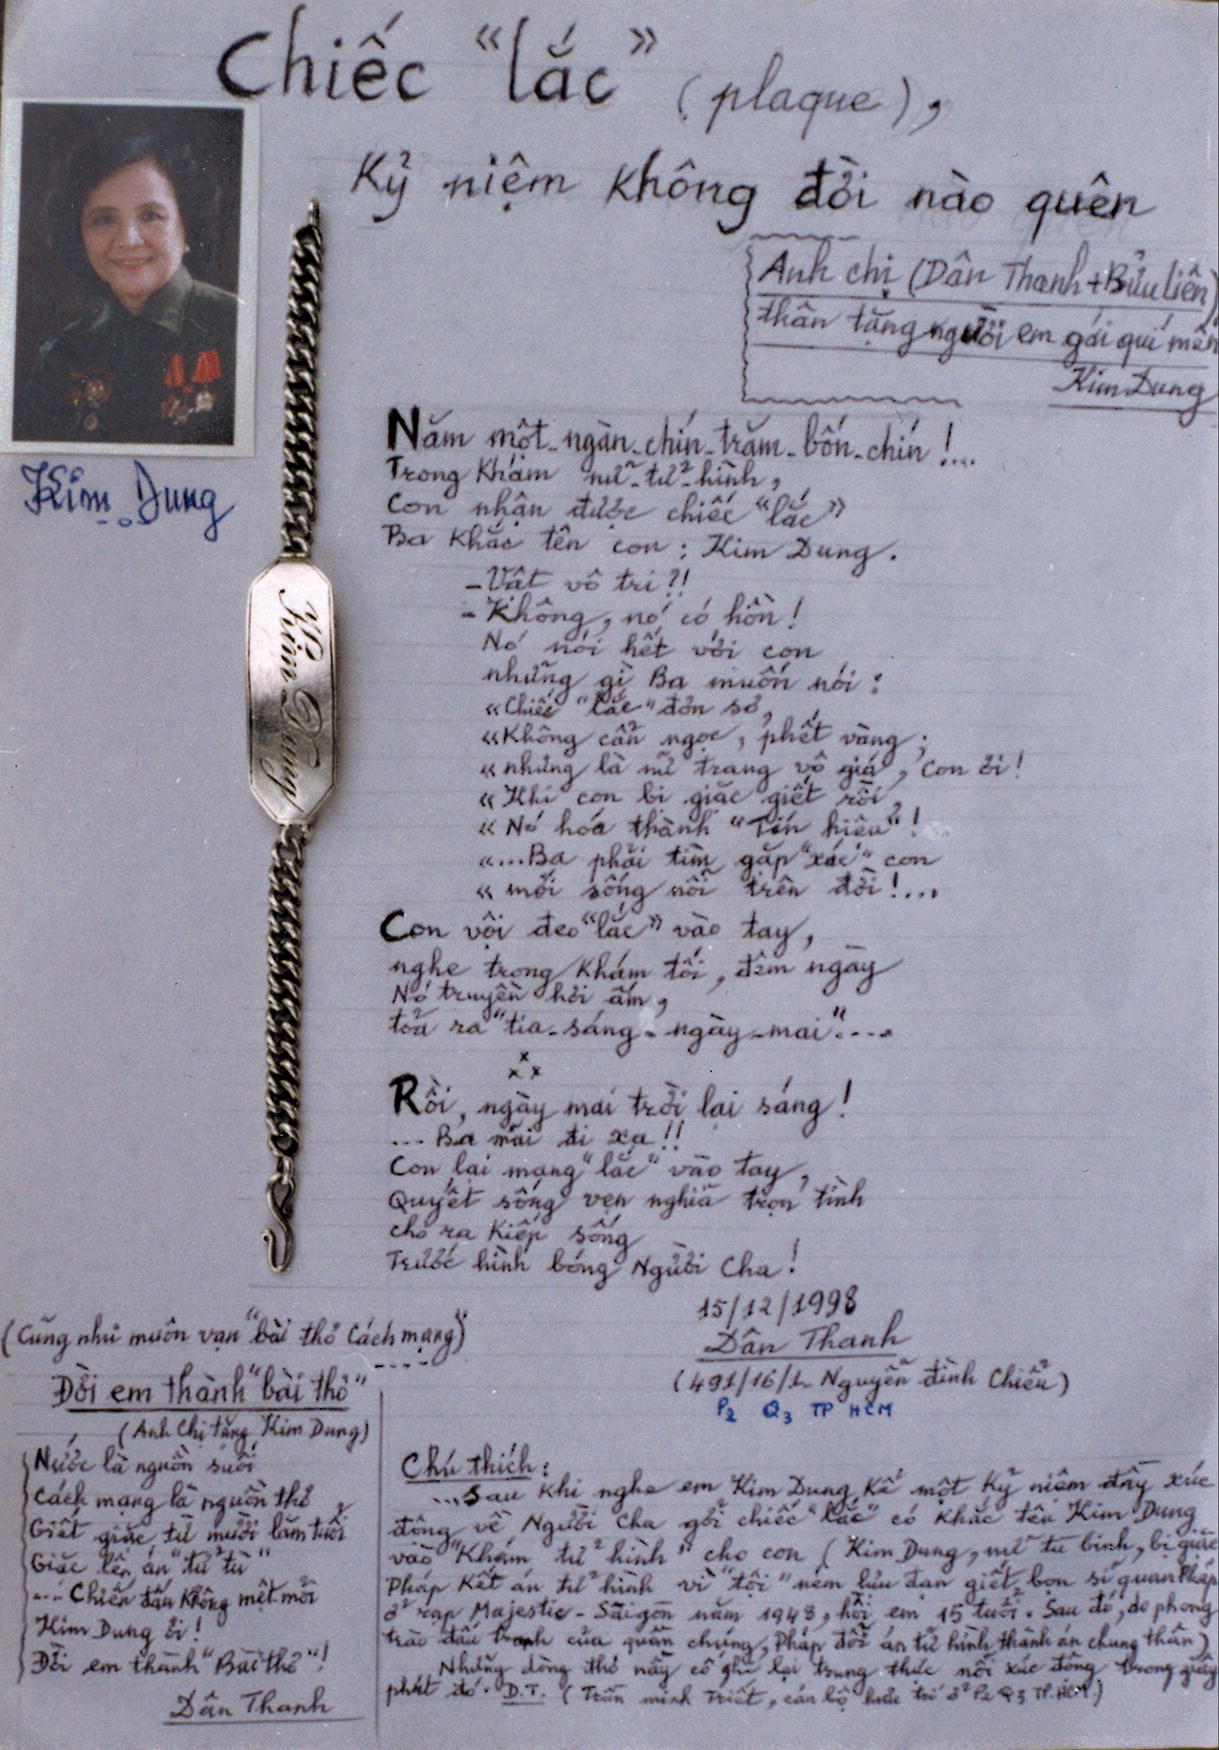 Chiếc "lắc" (plaque),
Kỷ niệm không đời nào quên
Anh chị (Dân Thanh + Bửu Liên)
thân tặng người em gái quí mến
Kim Dung
Kim Dung
Kim Dung
Năm một-ngàn-chín-trăm-bốn-chín!...
Trong Khám nữ-tử-hình,
Con nhận được chiếc "lắc"
Ba khắc tên con: Kim Dung.
- Vật vô tri?!
- Không, nó có hồn!
Nó nói hết với con
những gì Ba muốn nói:
"Chiếc "lắc" đơn sơ,
"Không cẩn ngọc, phết vàng;
"nhưng là nữ trang vô giá, con ơi!
"Khi con bị giặc giết rồi,
"Nó hóa thành "Tín hiệu"!
"...Ba phải tìm gặp "xác" con
"mới sống nổi trên đời!...
Con vội đeo "lắc" vào tay,
nghe trong Khám tối, đêm ngày
Nó truyền hơi ấm,
tỏa ra "tia-sáng-ngày-mai"....
x x x
Rồi, ngày mai trời lại sáng!
... Ba mãi đi xa!!
Con lại mang "lắc" vào tay,
Quyết sống vẹn nghĩa trọn tình
cho ra kiếp sống
Trước hình bóng Người Cha!
15/12/1998
Dân Thanh
(491/16/1 Nguyễn đình Chiểu)
P2 Q3 TP HCM
(Cũng như muôn vạn "bài thơ Cách mạng")
....
Đời em thành "bài thơ"
(Anh Chị tặng Kim Dung)
Nước là nguồn suối
Cách mạng là nguồn thơ
Giết giặc từ mười lăm tuổi
Giặc lên án "tử tù"
... Chiến đấu không mệt mỏi
Kim Dung ơi!
Đời em thành "Bài thơ"!
Dân Thanh
Chú thích:
...Sau khi nghe em Kim Dung kể một kỷ niệm đầy xúc
động về Người Cha gởi chiếc "lắc" có khắc tên Kim Dung
vào "Khám tử hình" cho con (Kim Dung, nữ tử hình, bị giặc
Pháp kết án tử hình vì "tội" ném lựu đạn giết bọn sĩ quan Pháp
ở rạp Majestic - Sàigòn năm 1948, hồi em 15 tuổi. Sau đó, do phong
trào đấu tranh của quần chúng, Pháp đổi án tử hình thành án chung thân)
Những dòng thơ này cố ghi lại trung thực nỗi xúc động trong giây
phút đó. D.T. (Trần minh Triết, cán bộ hưu trí ở P2 Q3 TP.HCM)